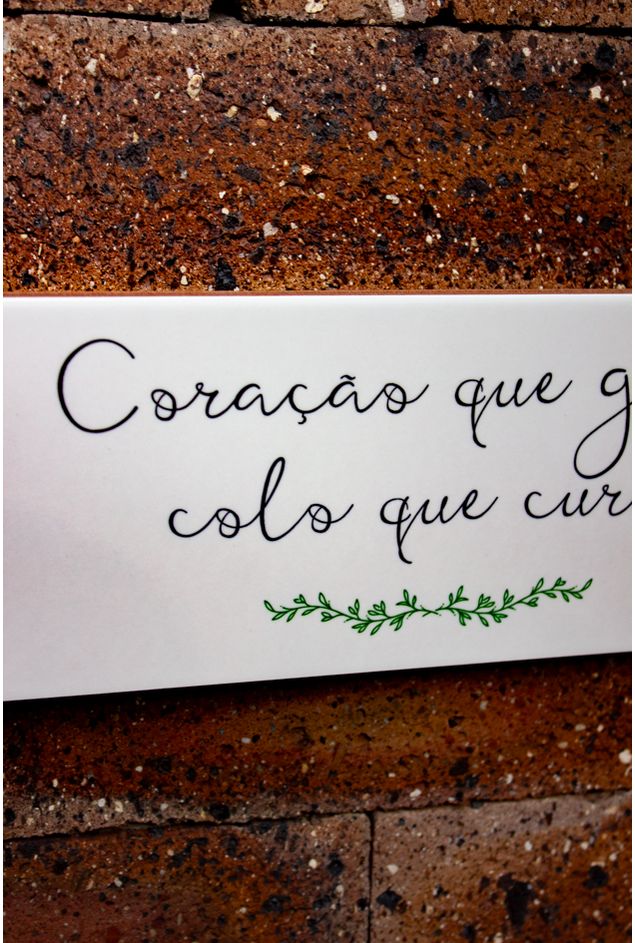 Coração que
colo que